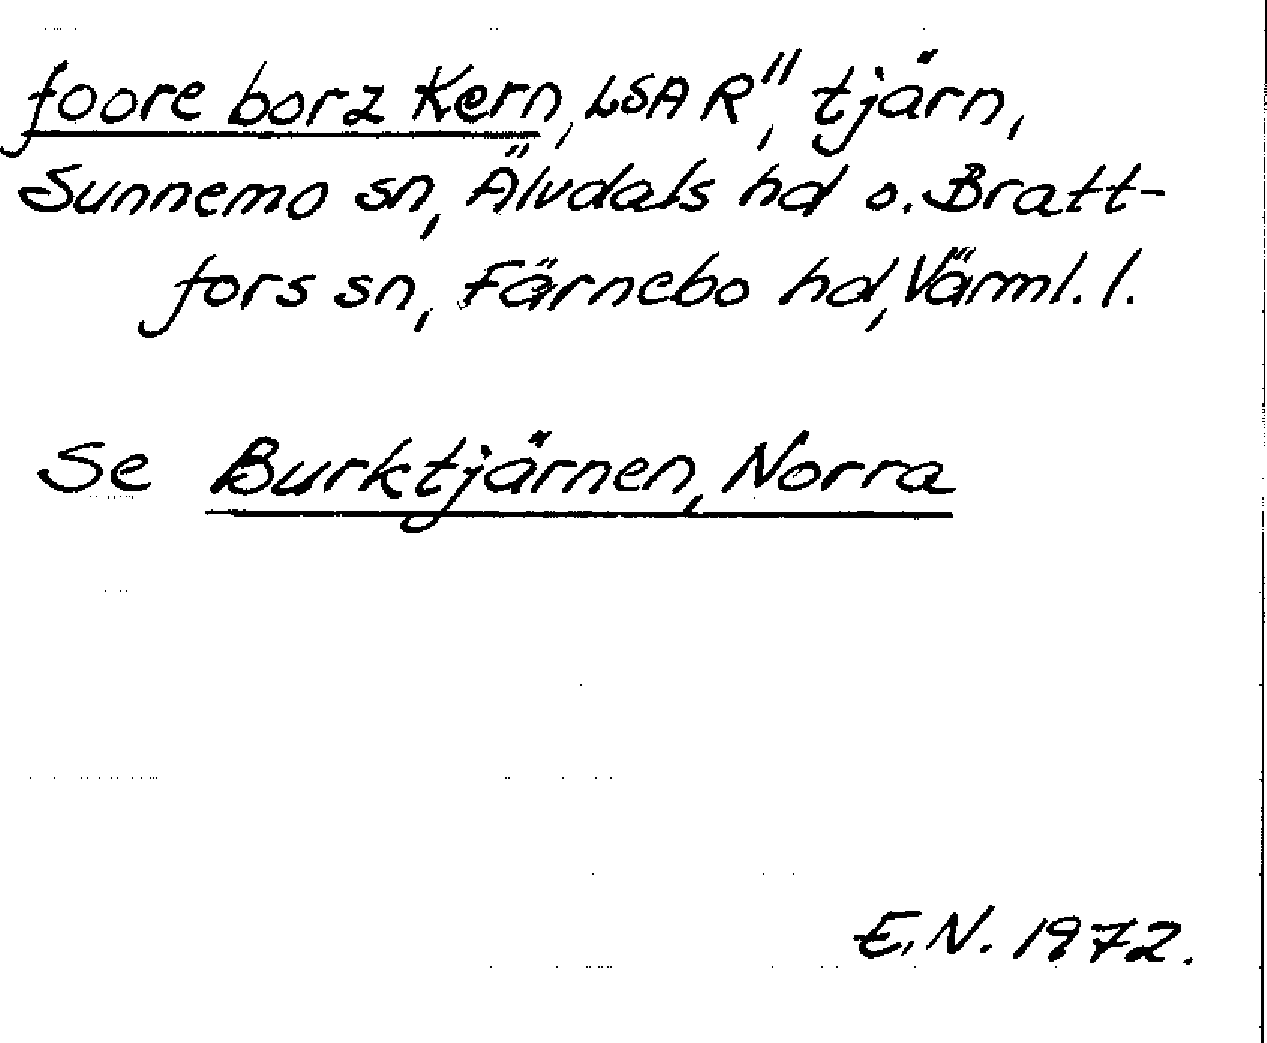 foore borz Kern, LSA R", tjärn,
Sunnemo sn, Älvdals hd o. Bratt-
fors sn, Färnebo hd, Värml. l.
Se Burktjärnen, Norra
E.N. 1972.